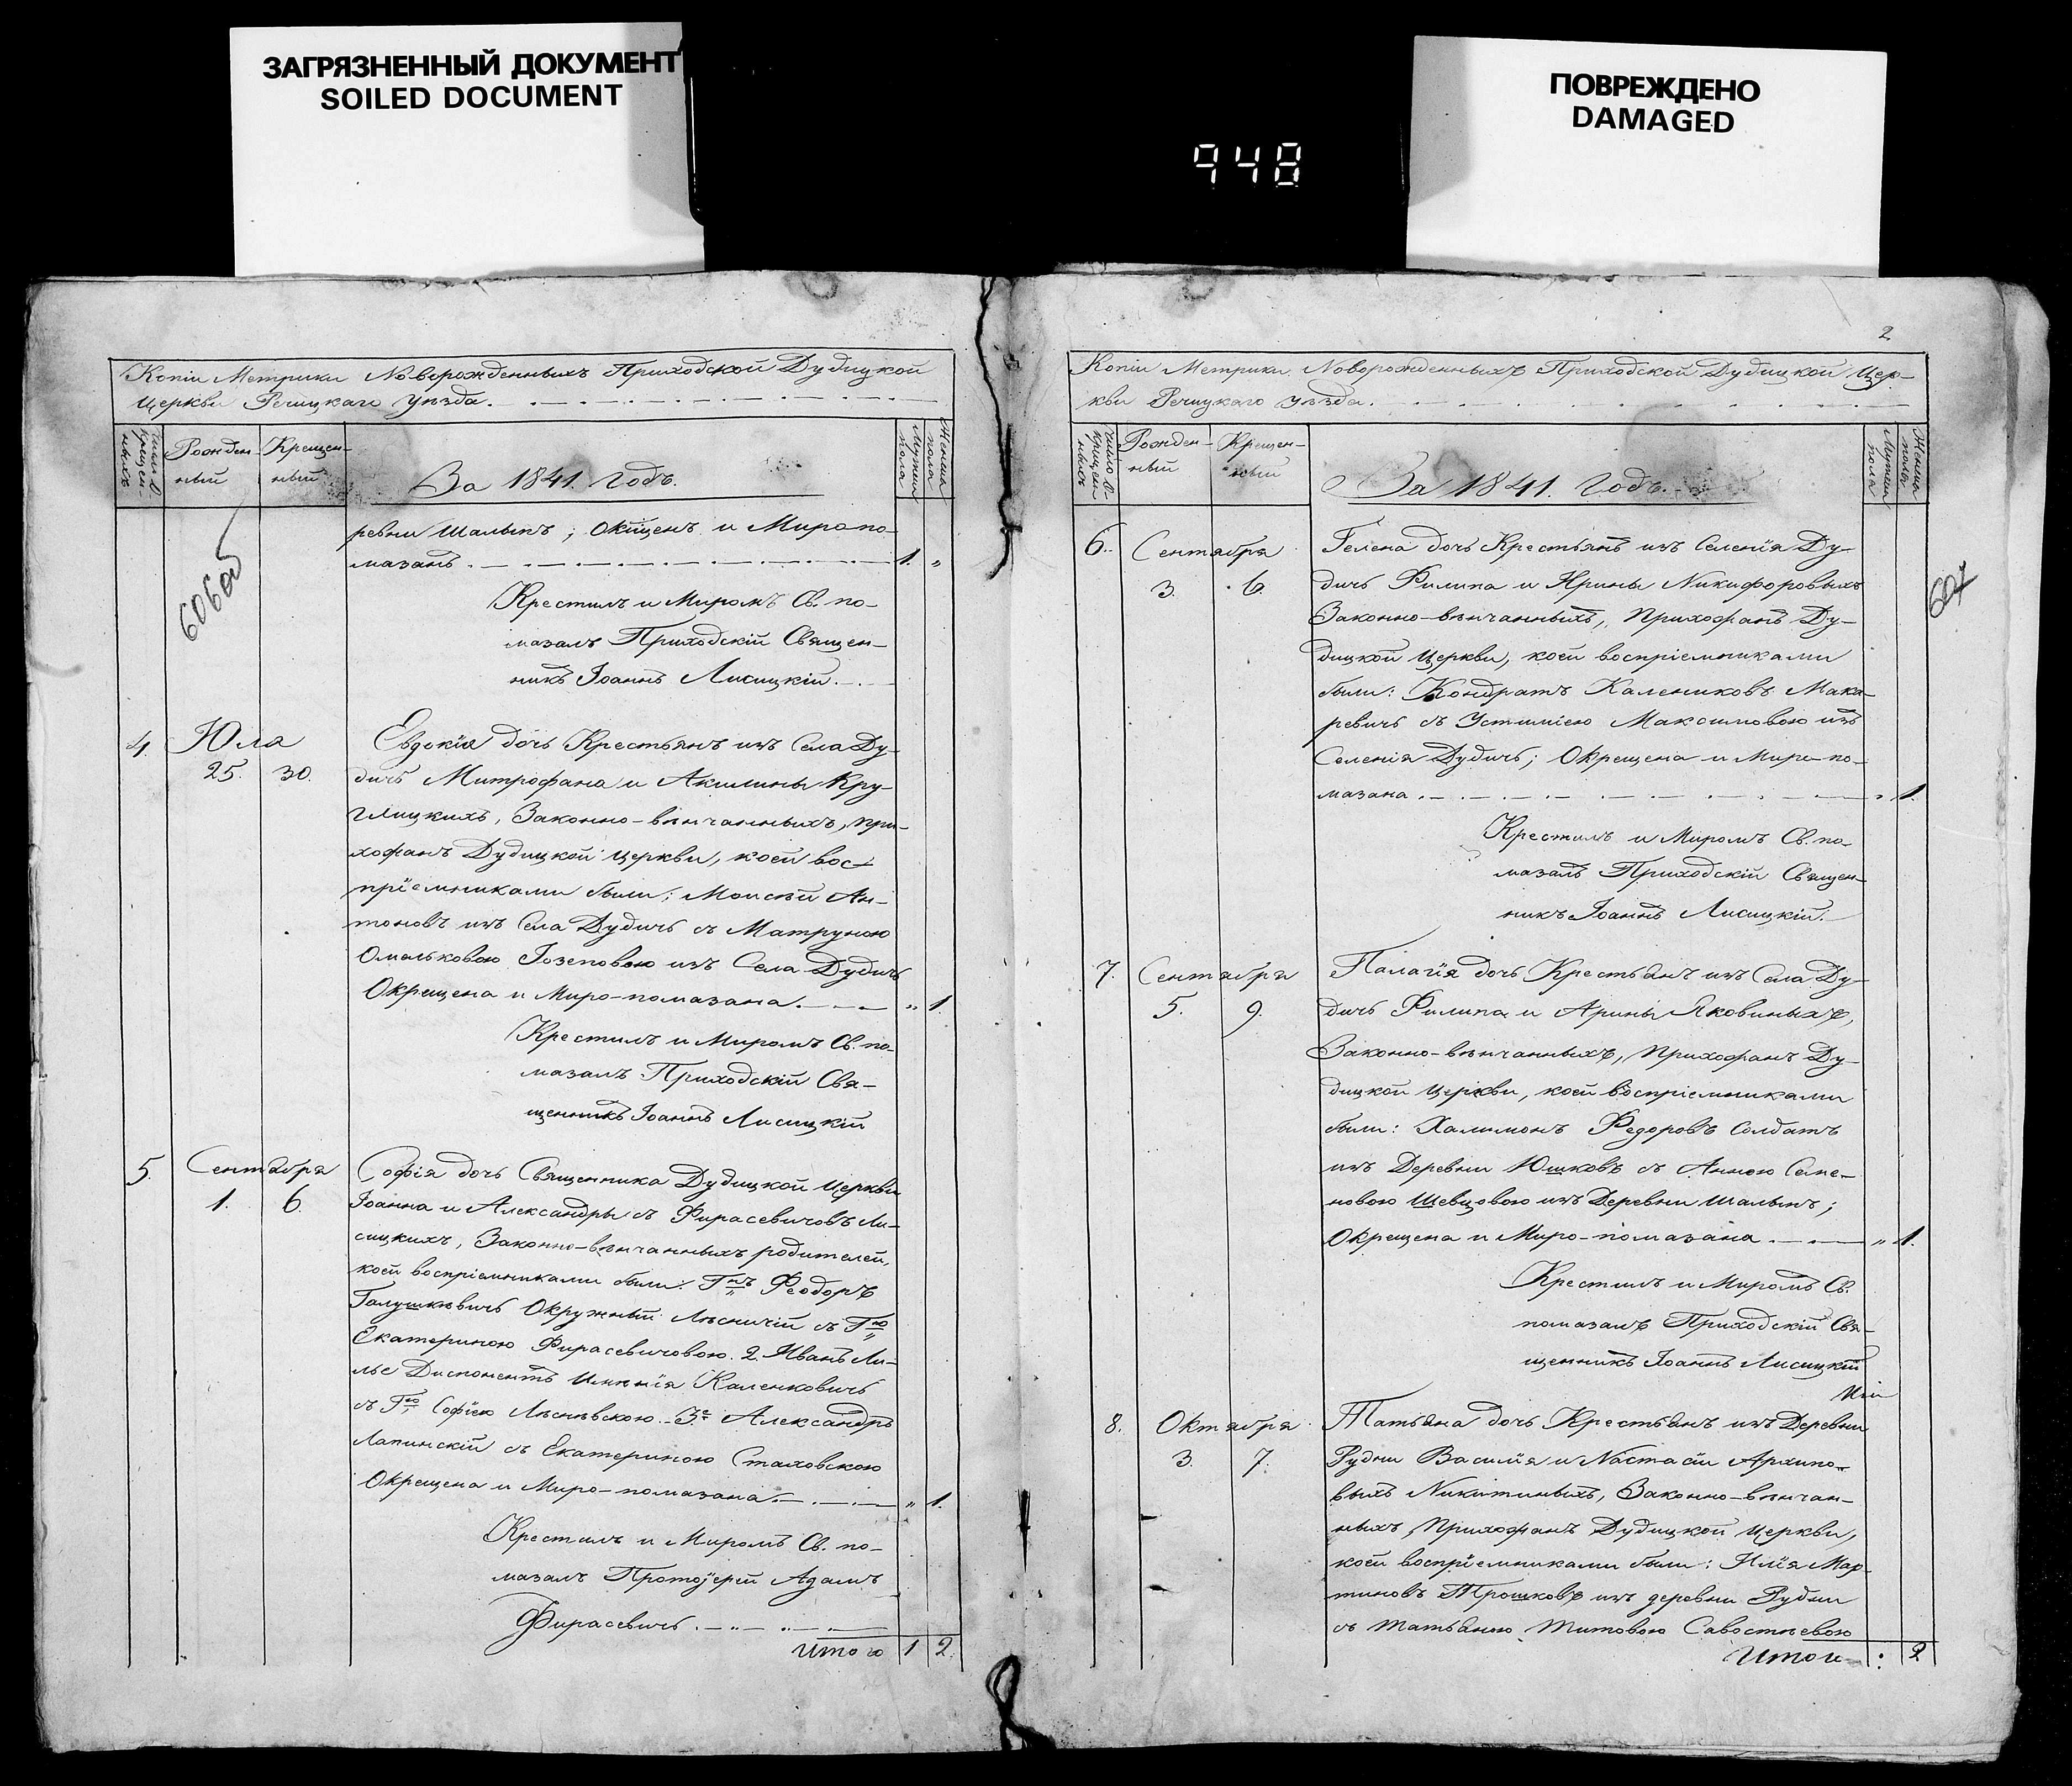 ЗАГРЯЗНЕННЫЙ ДОКУМЕНТ
SOILED DOCUMENT
948
ПОВРЕЖДЕНО
DAMAGED
Копіи Метрики Новорожденныхъ Приходской Дудицкой
Церкви Речицкаго Уѣзда.
Рожден-
ный
Крещен-
ный
За 1841. Годъ.
Мужеска
пола
Женска
пола
606об
ревни Шалыпъ; Окщенъ и Миропо-
мазанъ. 1. "
Крестилъ и Миромъ Св. по-
мазалъ Приходскій Священ-
никъ Іоаннъ Лисицкій.
4. Юля
25. 30.
Евдокія дочь Крестьянъ изъ Села Ду-
дичъ Митрофана и Акилины Кру-
глицкихъ, Законно-вѣнчанныхъ, при-
хожанъ Дудицкой Церкви, коей вос-
пріемниками были: Моисѣй Ан-
тоновъ изъ Села Дудичъ съ Матруною
Омельковою Іозеповою изъ Села Дудичъ
Окрещена и Миро-помазана. " 1.
Крестилъ и Миромъ Св. по-
мазалъ Приходскій Свя-
щенникъ Іоаннъ Лисицкій
5. Сентября
1. 6.
Софія дочь Священника Дудицкой Церкви
Іоанна и Александры съ Фирасевичовъ Ли-
сицкихъ, Законно-вѣнчанныхъ родителей,
коей воспріемниками были: Гнъ Феодоръ
Галушкѣвичъ Окружный Лѣсничій съ Гю
Екатериною Фирасевичовою. 2. Иванъ Ли-
лье Диспонентъ Имѣнія Каленковичъ
съ Гю Софіею Лѣснѣвскою. 3е Александръ
Лапинскій съ Екатериною Стаховскою
Окрещена и Миро-помазана. " 1.
Крестилъ и Миромъ Св. по-
мазалъ Протоіерей Адамъ
Фирасевичъ.
Итого 1 2.
2
Копіи Метрики Новорожденныхъ Приходской Дудицкой Цер-
кви Речицкаго Уѣзда.
Рожден-
ный
Крещен-
ный
За 1841. Годъ.
Мужеска
пола
Женска
пола
607
6. Сентября
3. 6.
Гелена дочь Крестьянъ изъ Селенія Ду-
дичъ Филипа и Ирины Никифоровыхъ
Законно-вѣнчанныхъ, Прихожанъ Ду-
дицкой Церкви, коей воспріемниками
были: Кондратъ Калениковъ Мака-
ревичъ съ Устиніею Максимовою изъ
Селенія Дудичъ; Окрещена и Миро-по-
мазана. " 1.
Крестилъ и Миромъ Св. по-
мазалъ Приходскій Священ-
никъ Іоаннъ Лисицкій.
7. Сентября
5. 9.
Палагія дочь Крестьянъ изъ Села Ду-
дичъ Филипа и Арины Яковиныхъ,
Законно-вѣнчанныхъ, Прихожанъ Ду-
дицкой Церкви, коей воспріемниками
были: Халимонъ Федоровъ Солдатъ
изъ Деревни Юшковъ съ Анною Семе-
новою Шевцовою изъ Деревни Шалыпъ;
Окрещена и Миро-помазана. " 1.
Крестилъ и Миромъ Св.
помазалъ Приходскій Свя-
щенникъ Іоаннъ Лисицкій
8. Октября
3. 7.
Татьяна дочь Крестьянъ изъ Деревни
Рудни Василія и Настасіи Архипо-
выхъ Никитиныхъ, Законно-вѣнчан-
ныхъ, Прихожанъ Дудицкой Церкви,
коей воспріемниками были: Илія Мар-
тиновъ Трошковъ изъ деревни Рудни
съ Татьяною Титовою Савостѣевою
Итого : 2